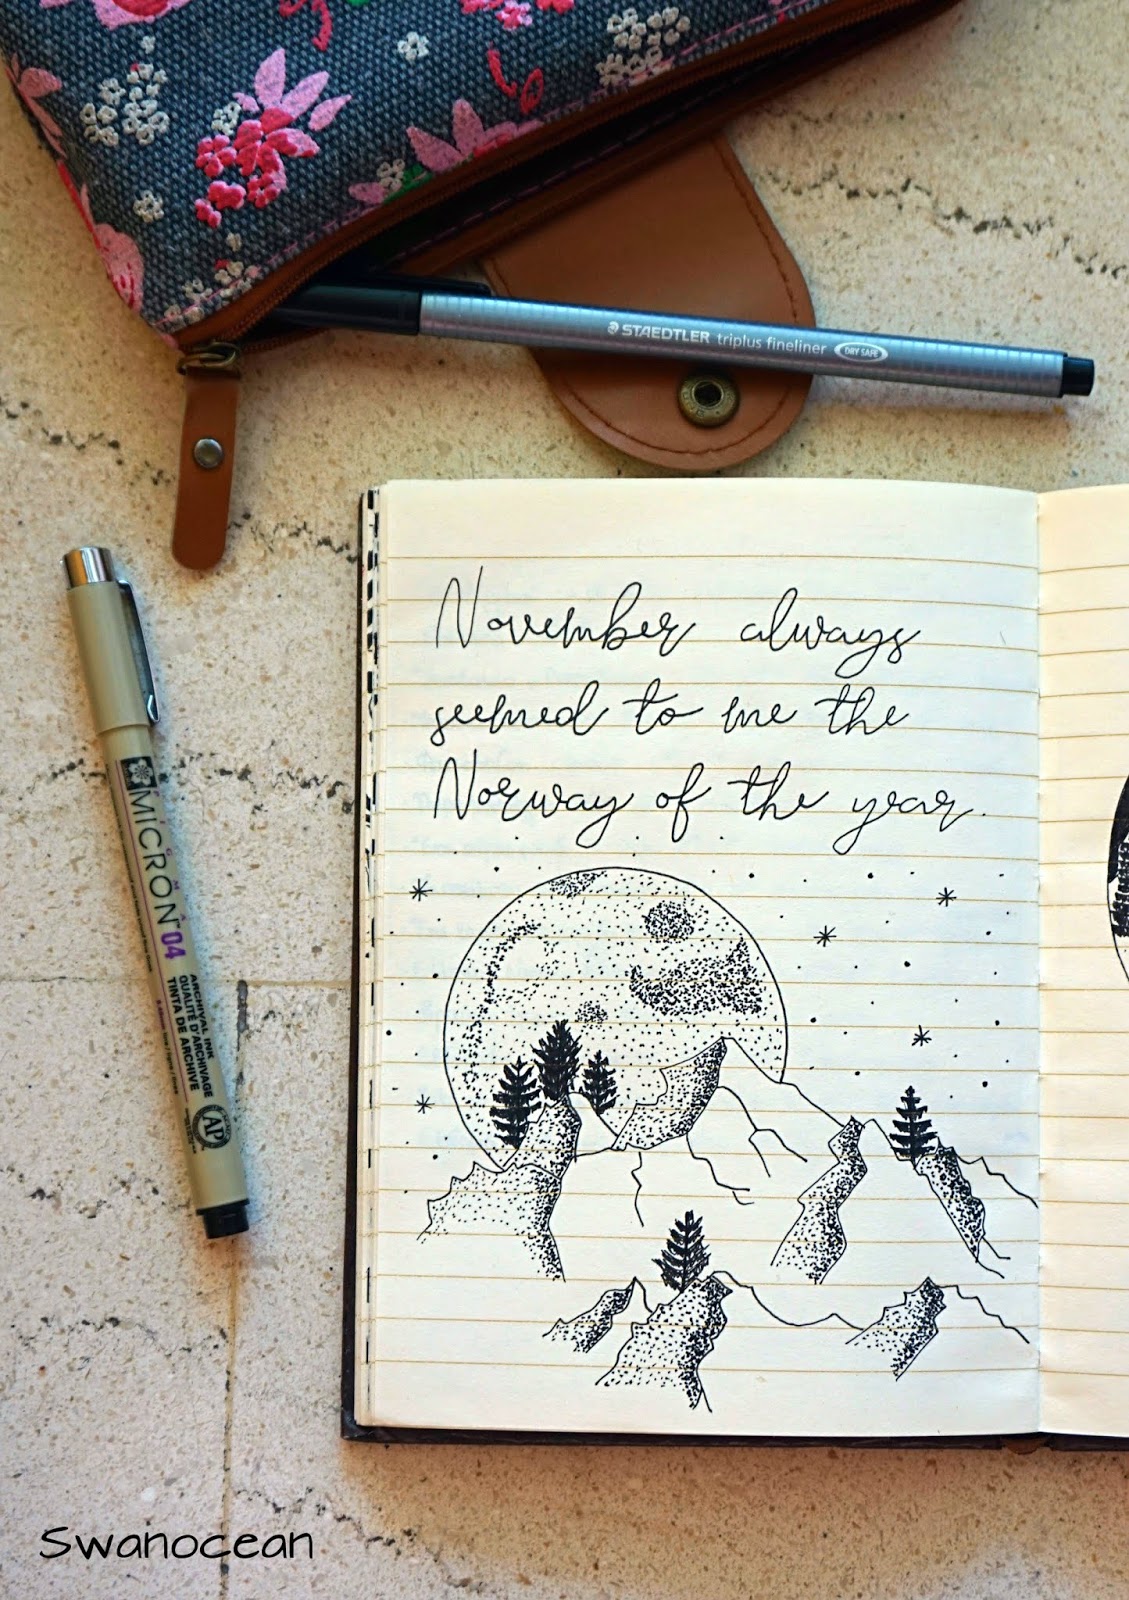 STAEDTLER triplus fineliner DRY SAFE
November always
seemed to me the
Norway of the year.
PIGMA
MICRON™ 04
ARCHIVAL INK
QUALITÉ D'ARCHIVAGE
TINTA DE ARCHIVE
AP
Swanocean